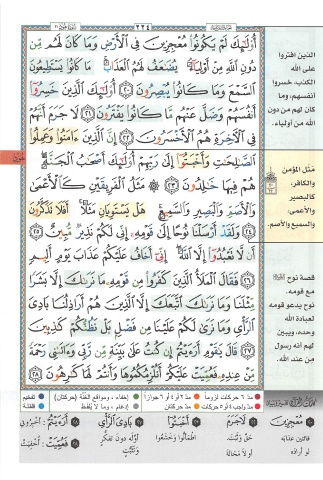 ٢٢٤
أُوْلَٰٓئِكَ لَمْ يَكُونُواْ مُعْجِزِينَ فِي ٱلْأَرْضِ وَمَا كَانَ لَهُم مِّن
دُونِ ٱللَّهِ مِنْ أَوْلِيَآءَ يُضَٰعَفُ لَهُمُ ٱلْعَذَابُ مَا كَانُواْ يَسْتَطِيعُونَ
ٱلسَّمْعَ وَمَا كَانُواْ يُبْصِرُونَ ٢٠ أُوْلَٰٓئِكَ ٱلَّذِينَ خَسِرُوٓاْ
أَنفُسَهُمْ وَضَلَّ عَنْهُم مَّا كَانُواْ يَفْتَرُونَ ٢١ لَا جَرَمَ أَنَّهُمْ
فِي ٱلْأٓخِرَةِ هُمُ ٱلْأَخْسَرُونَ ٢٢ إِنَّ ٱلَّذِينَ ءَامَنُواْ وَعَمِلُواْ
ٱلصَّٰلِحَٰتِ وَأَخْبَتُوٓاْ إِلَىٰ رَبِّهِمْ أُوْلَٰٓئِكَ أَصْحَٰبُ ٱلْجَنَّةِ
هُمْ فِيهَا خَٰلِدُونَ ٢٣ مَثَلُ ٱلْفَرِيقَيْنِ كَٱلْأَعْمَىٰ
وَٱلْأَصَمِّ وَٱلْبَصِيرِ وَٱلسَّمِيعِ هَلْ يَسْتَوِيَانِ مَثَلًا أَفَلَا تَذَكَّرُونَ
٢٤ وَلَقَدْ أَرْسَلْنَا نُوحًا إِلَىٰ قَوْمِهِۦٓ إِنِّي لَكُمْ نَذِيرٌ مُّبِينٌ ٢٥
أَن لَّا تَعْبُدُوٓاْ إِلَّا ٱللَّهَ إِنِّيٓ أَخَافُ عَلَيْكُمْ عَذَابَ يَوْمٍ أَلِيمٍ
٢٦ فَقَالَ ٱلْمَلَأُ ٱلَّذِينَ كَفَرُواْ مِن قَوْمِهِۦ مَا نَرَىٰكَ إِلَّا بَشَرًا
مِّثْلَنَا وَمَا نَرَىٰكَ ٱتَّبَعَكَ إِلَّا ٱلَّذِينَ هُمْ أَرَاذِلُنَا بَادِيَ
ٱلرَّأْيِ وَمَا نَرَىٰ لَكُمْ عَلَيْنَا مِن فَضْلٍۭ بَلْ نَظُنُّكُمْ كَٰذِبِينَ
٢٧ قَالَ يَٰقَوْمِ أَرَءَيْتُمْ إِن كُنتُ عَلَىٰ بَيِّنَةٍ مِّن رَّبِّي وَءَاتَىٰنِي رَحْمَةً
مِّنْ عِندِهِۦ فَعُمِّيَتْ عَلَيْكُمْ أَنُلْزِمُكُمُوهَا وَأَنتُمْ لَهَا كَٰرِهُونَ ٢٨
الذين افتروا
على الله
الكذب، خسروا
أنفسهم، وما
كان لهم من دون
الله من أولياء.
مَثَل المؤمن
والكافر،
كالبصير
والأعمى،
والسميع والأصم.
قصة نوح
مع قومه.
نوح يدعو قومه
لعبادة الله
وحده، ويبين
لهم أنه رسول
من عند الله.
مد ٦ حركات لزوماً
مد ٢ أو ٤ أو ٦ جوازاً
إخفاء، ومواقع الغنة (حركتان)
تفخيم
مد واجب ٤ أو ٥ حركات
مد حركتان
إدغام، وما لا يلفظ
قلقلة
مُعْجِزِينَ
فائتين عذابه
لو أراده
لَا جَرَمَ
حق وثبت،
أو لا محالة
أَخْبَتُوا
اطمأنوا وخشعوا
بَادِيَ الرَّأْيِ
أوله دون تفكر
وتثبت
أَرَأَيْتُمْ
أخبروني
فَعُمِّيَتْ
أُخفيت